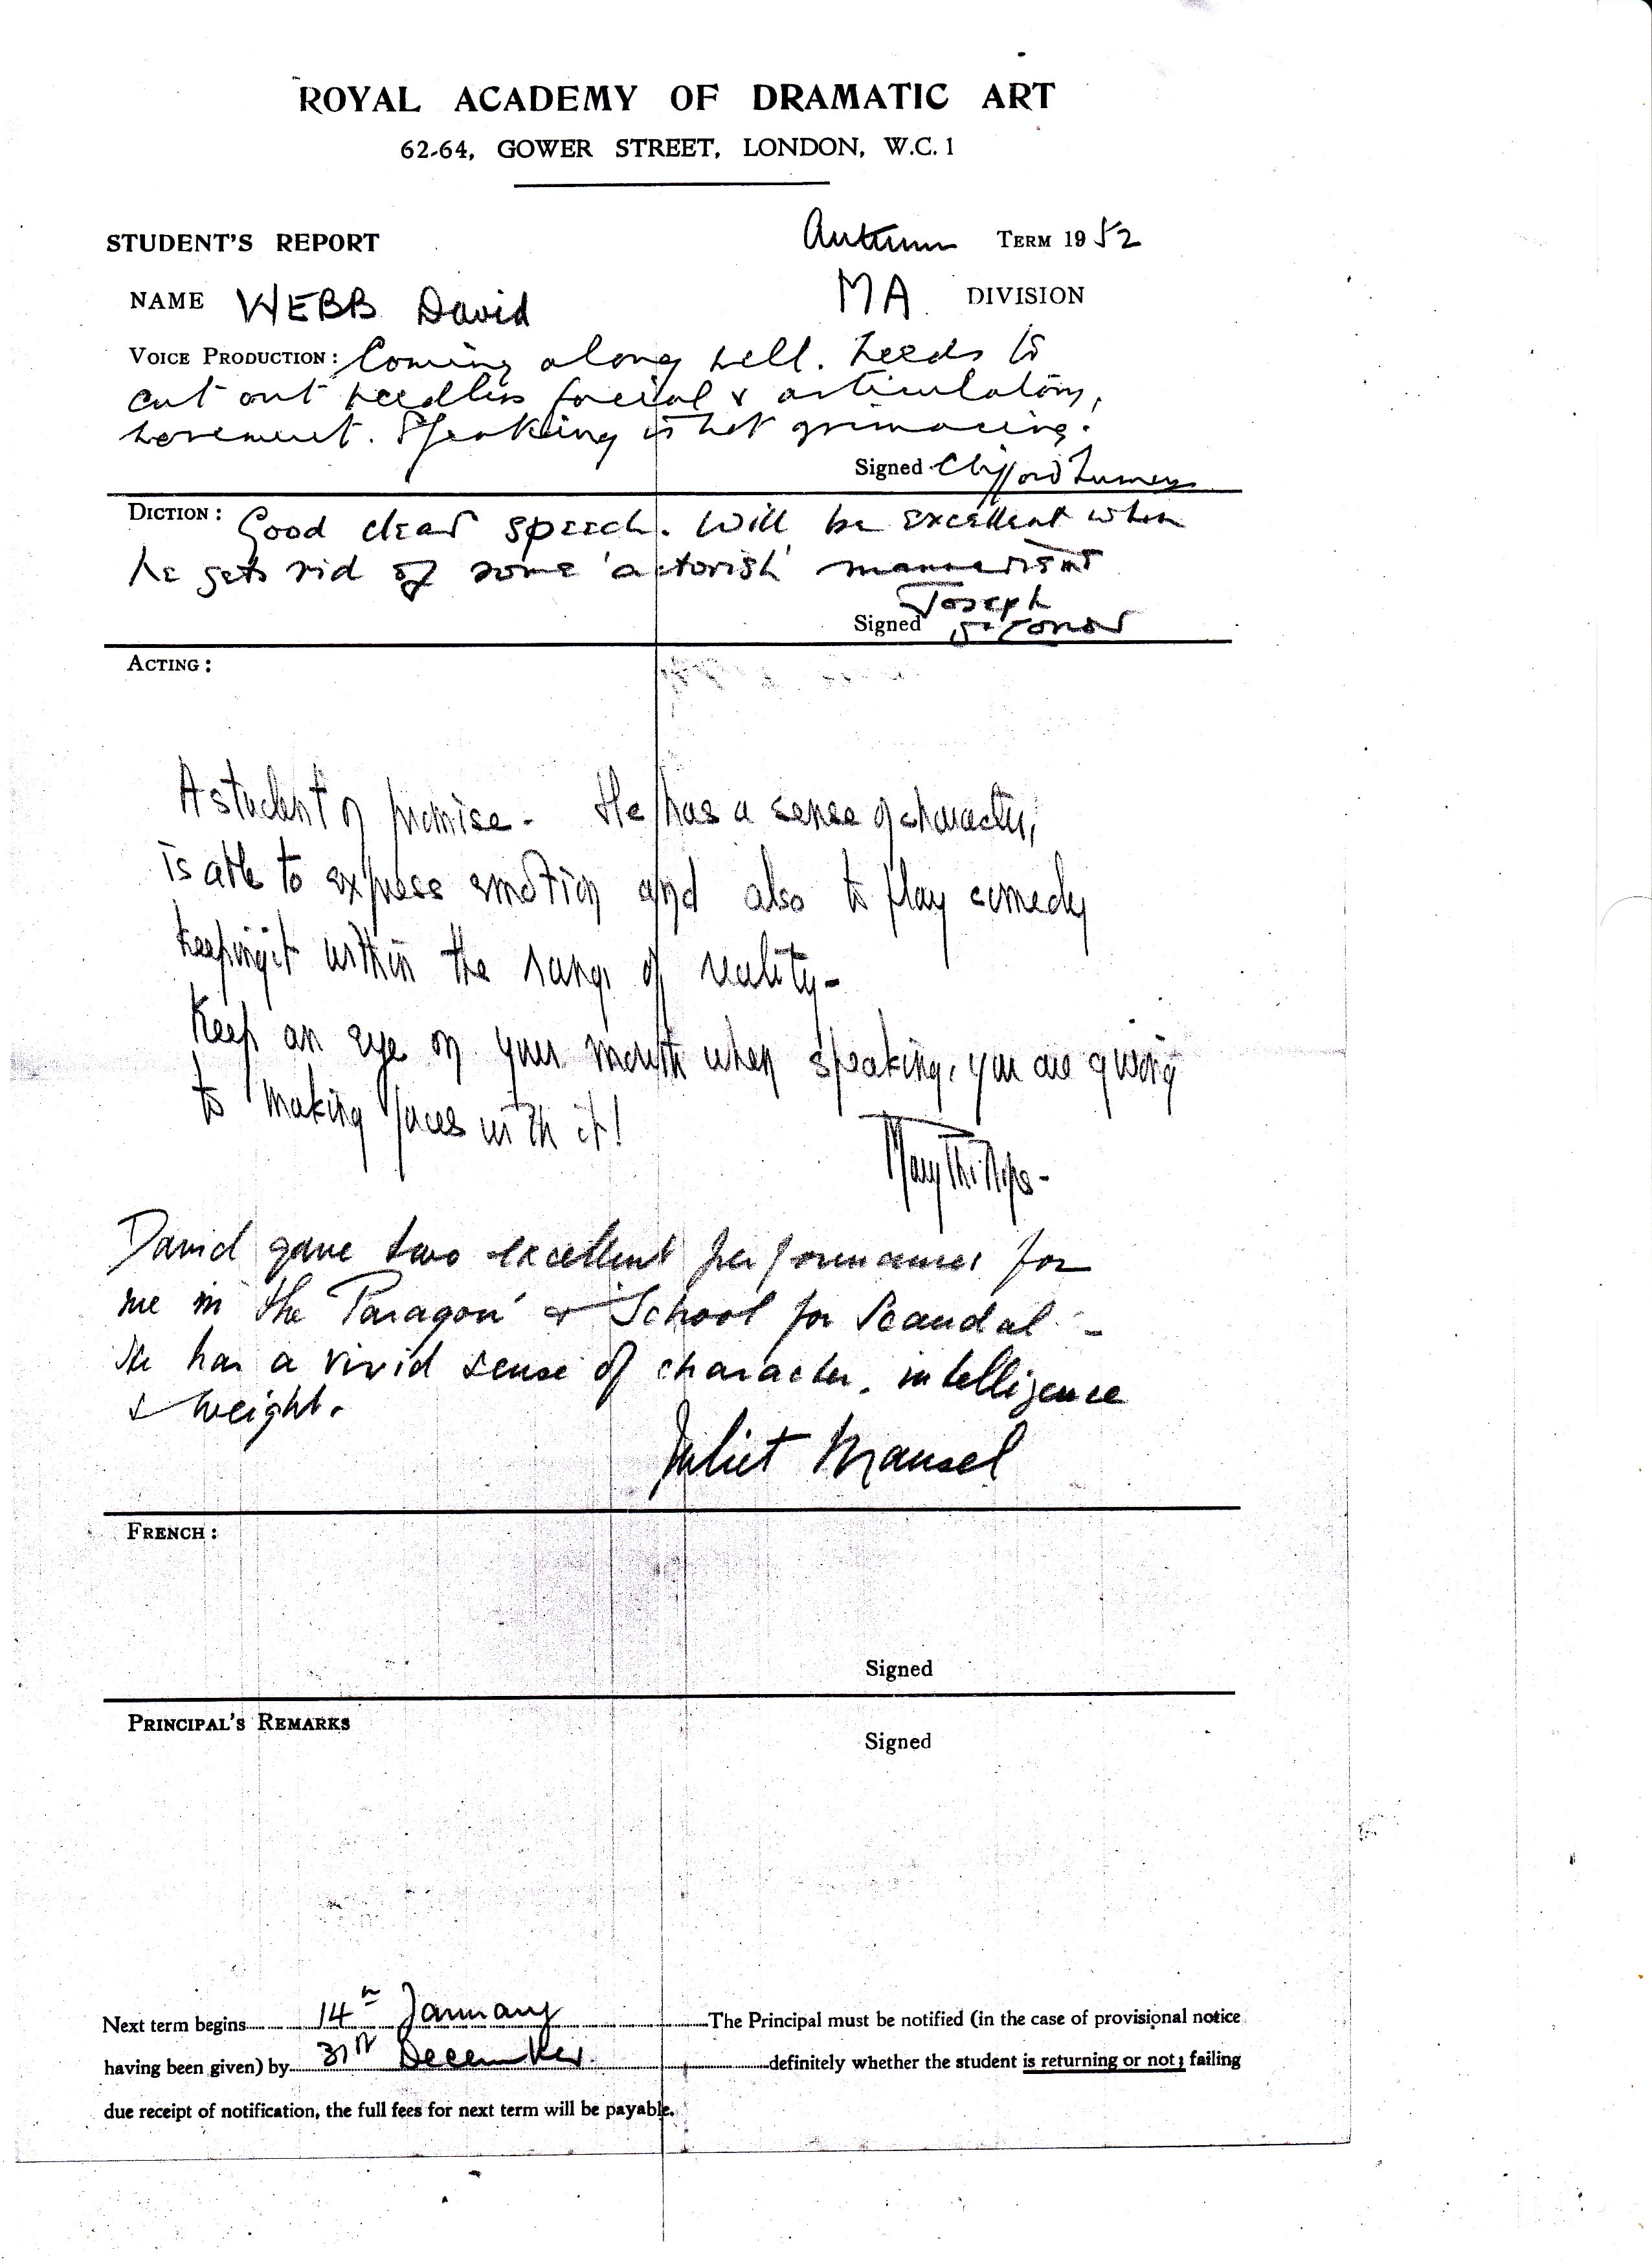 ROYAL ACADEMY OF DRAMATIC ART
62-64, GOWER STREET, LONDON, W.C.1
STUDENT'S REPORT Autumn TERM 1952
NAME WEBB David MA DIVISION
VOICE PRODUCTION: Coming along well. Needs to
cut out needless facial & articulatory
movement. Speaking is not grimacing.
Signed Clifford Turner
DICTION: Good clear speech. Will be excellent when
he gets rid of some 'actorish' mannerisms
Joseph
Signed O'Conor
ACTING:
A student of promise - He has a sense of character,
is able to express emotion and also to play comedy
keeping it within the range of reality -
Keep an eye on your mouth when speaking, you are giving
to making faces with it!
Mary Phillips -
David gave two excellent performances for
me in 'the Paragon' & 'School for Scandal' -
He has a vivid sense of character, intelligence
& weight.
Juliet Mansel
FRENCH:
Signed
PRINCIPAL'S REMARKS
Signed
Next term begins 14th January The Principal must be notified (in the case of provisional notice
having been given) by 31st December definitely whether the student is returning or not; failing
due receipt of notification, the full fees for next term will be payable.